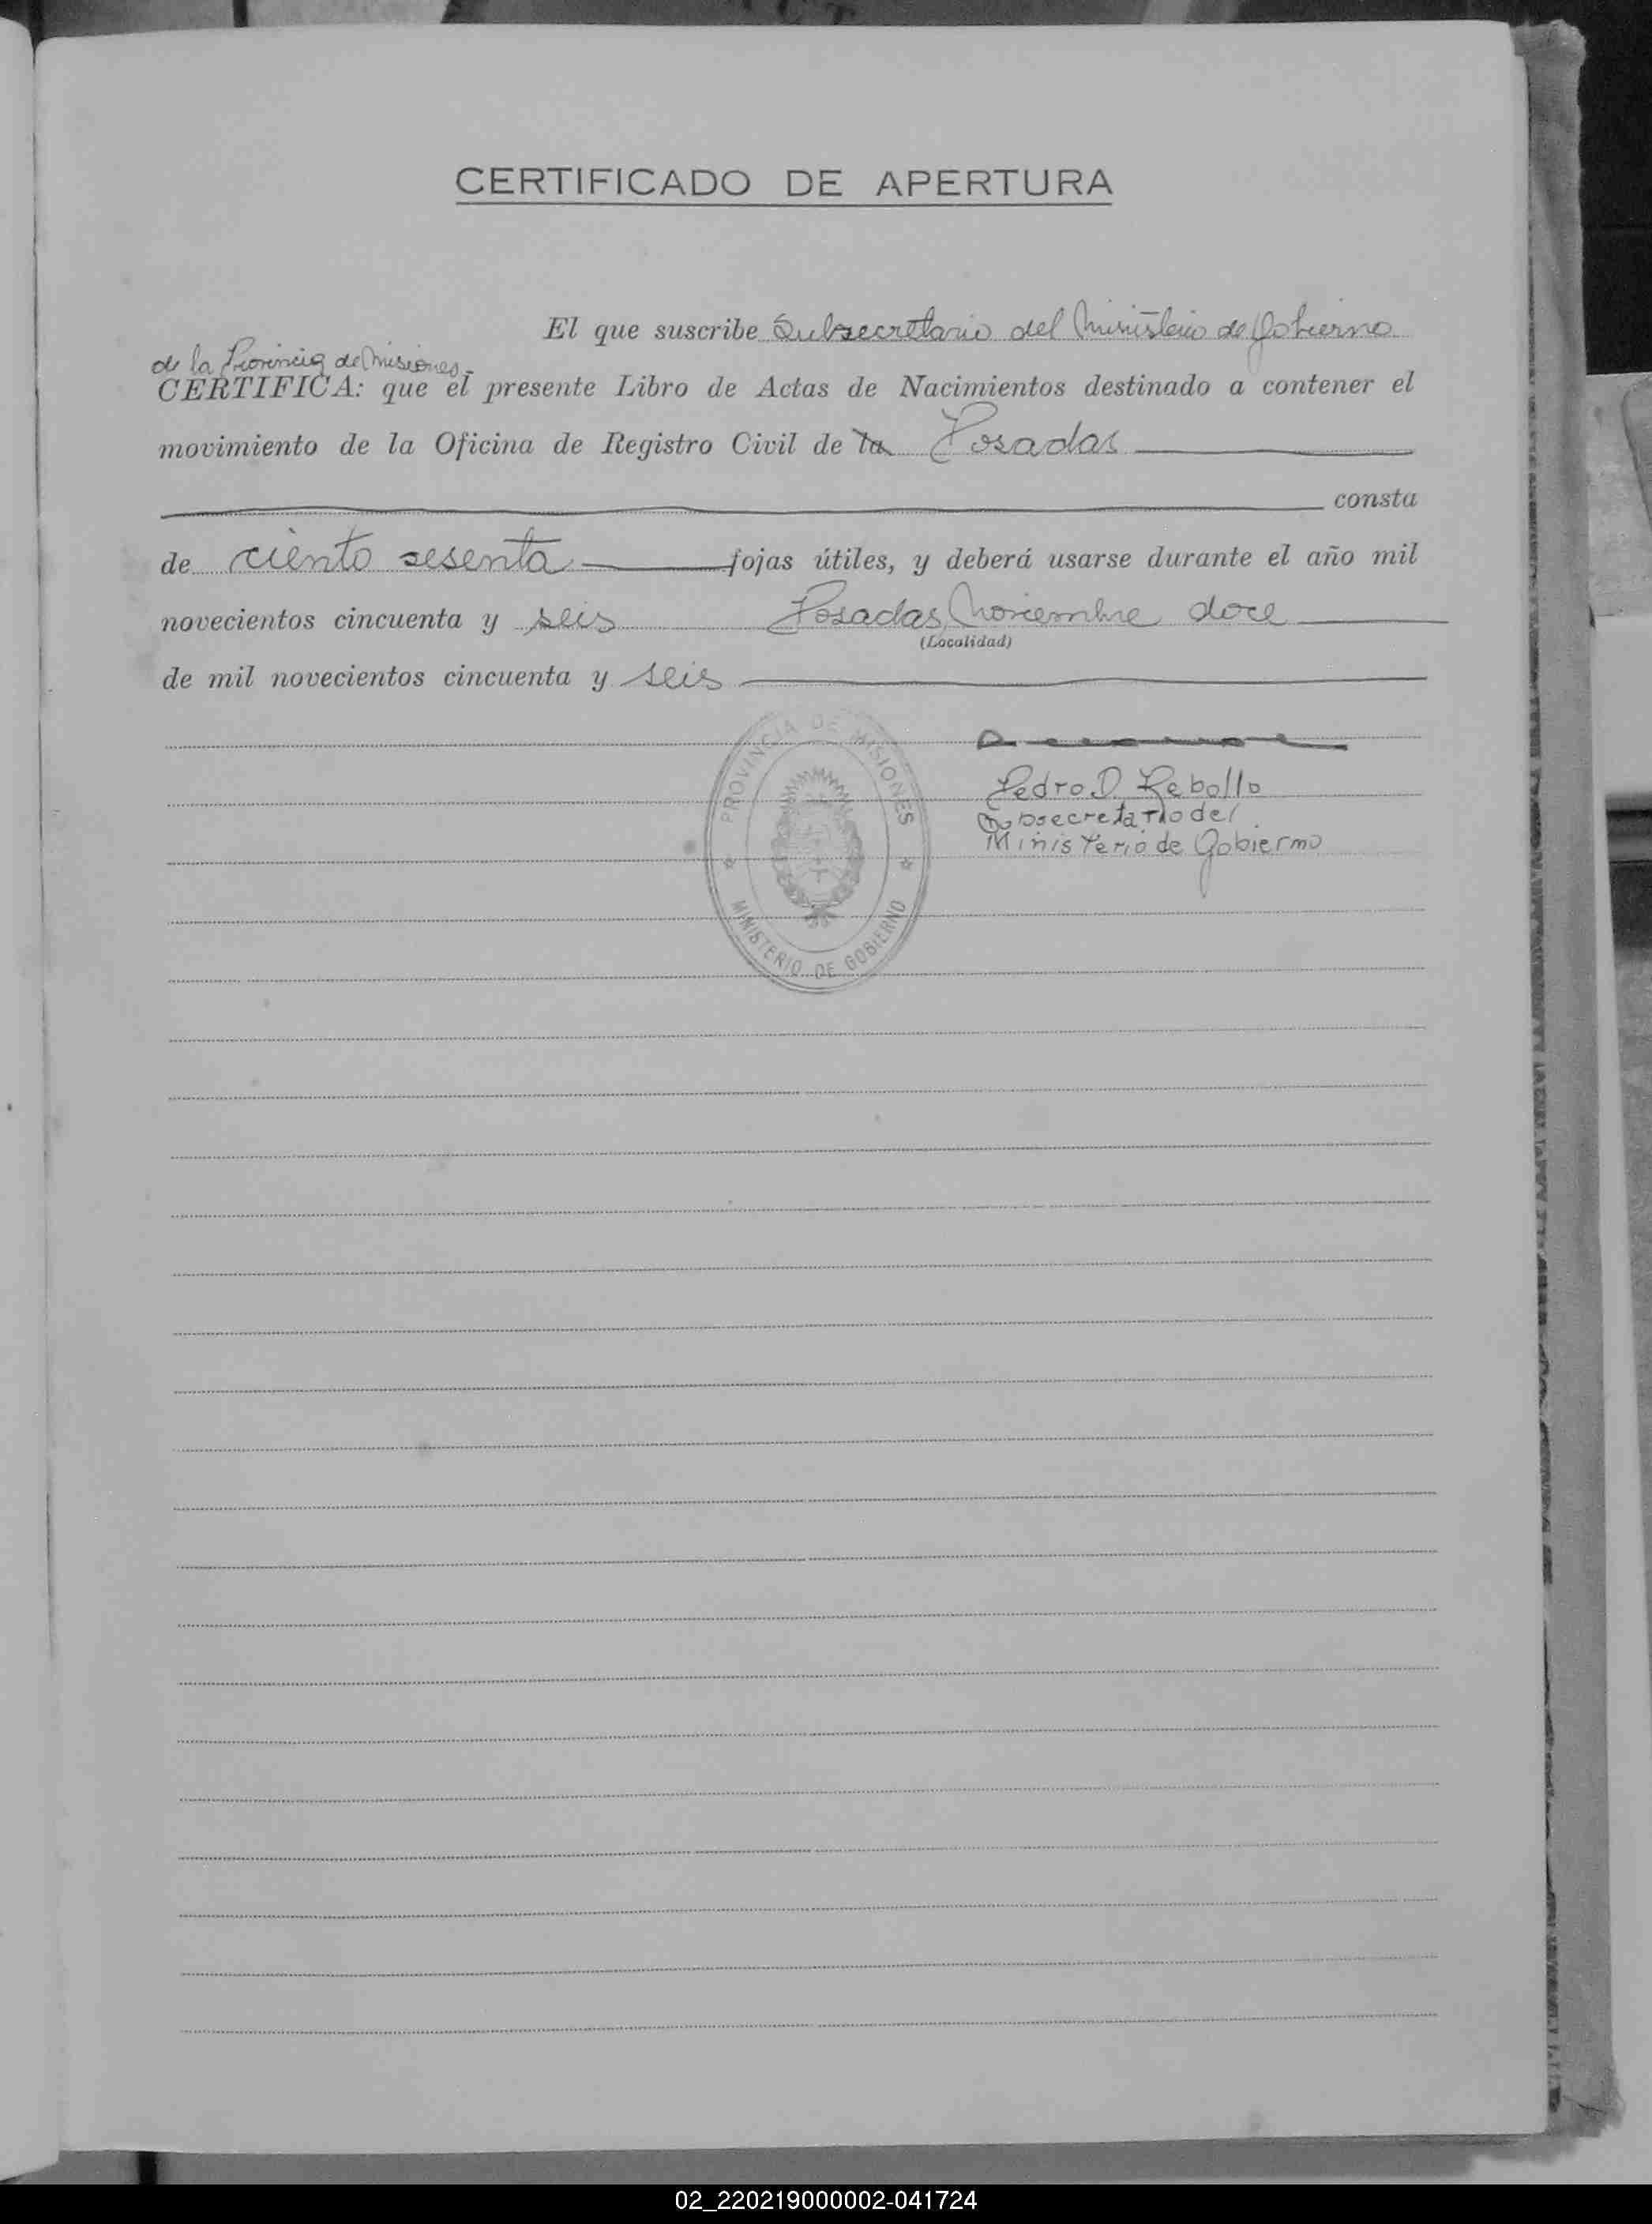 CERTIFICADO DE APERTURA
El que suscribe Subsecretario del Ministerio de Gobierno
de la Provincia de Misiones.-
CERTIFICA: que el presente Libro de Actas de Nacimientos destinado a contener el
movimiento de la Oficina de Registro Civil de la Posadas
consta
de ciento sesenta fojas útiles, y deberá usarse durante el año mil
novecientos cincuenta y seis Posadas, Noviembre doce
(Localidad)
de mil novecientos cincuenta y seis
PROVINCIA DE MISIONES
MINISTERIO DE GOBIERNO
Pedro D. Rebollo
Subsecretario del
Ministerio de Gobierno
02_220219000002-041724